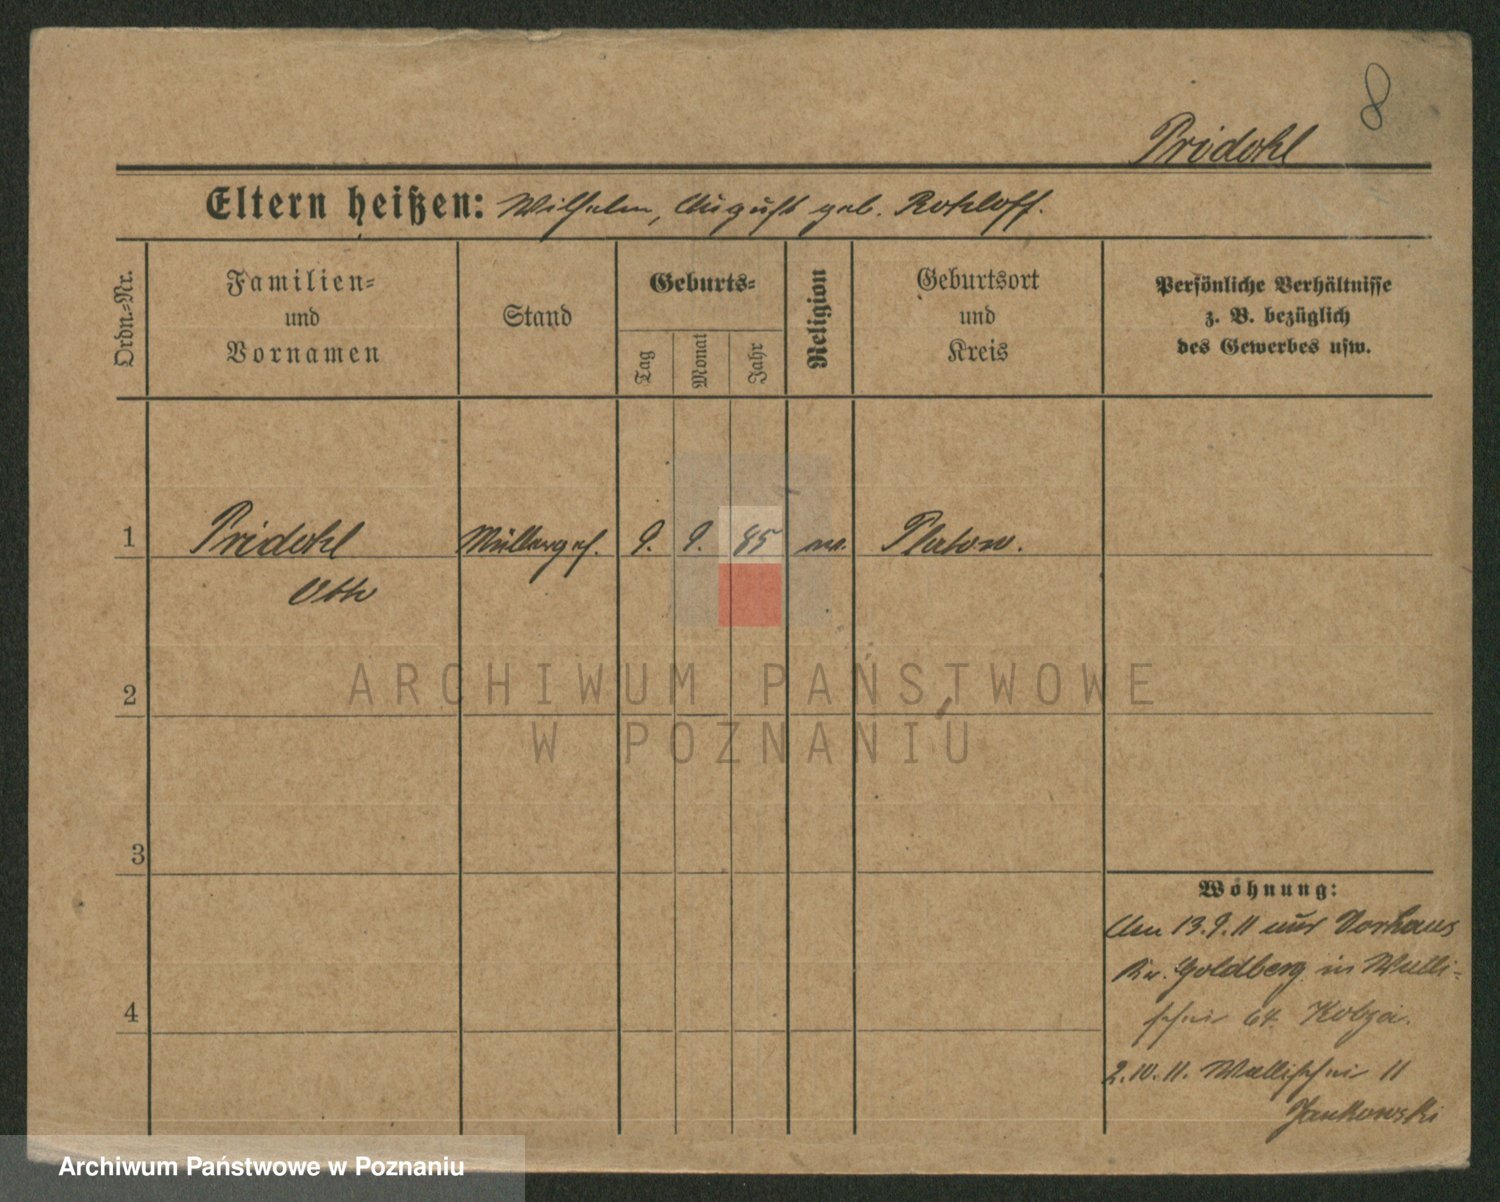 8
Pridohl
Eltern heißen: Wilhelm, August geb. Rohloff.
Ordn.-Nr.
Familien-
und
Vornamen
Stand
Geburts-
Tag
Monat
Jahr
Religion
Geburtsort
und
Kreis
Persönliche Verhältnisse
z. B. bezüglich
des Gewerbes usw.
1 Pridohl Müllerges. 9. 9. 85 Platow.
Otto
2
3
4
Wohnung:
13.9.11 aus Vorhaus
Goldberg in Walli-
schei 64.
2.10.11. Wallischei 11
Jankowski
ARCHIWUM PAŃSTWOWE
W POZNANIU
Archiwum Państwowe w Poznaniu